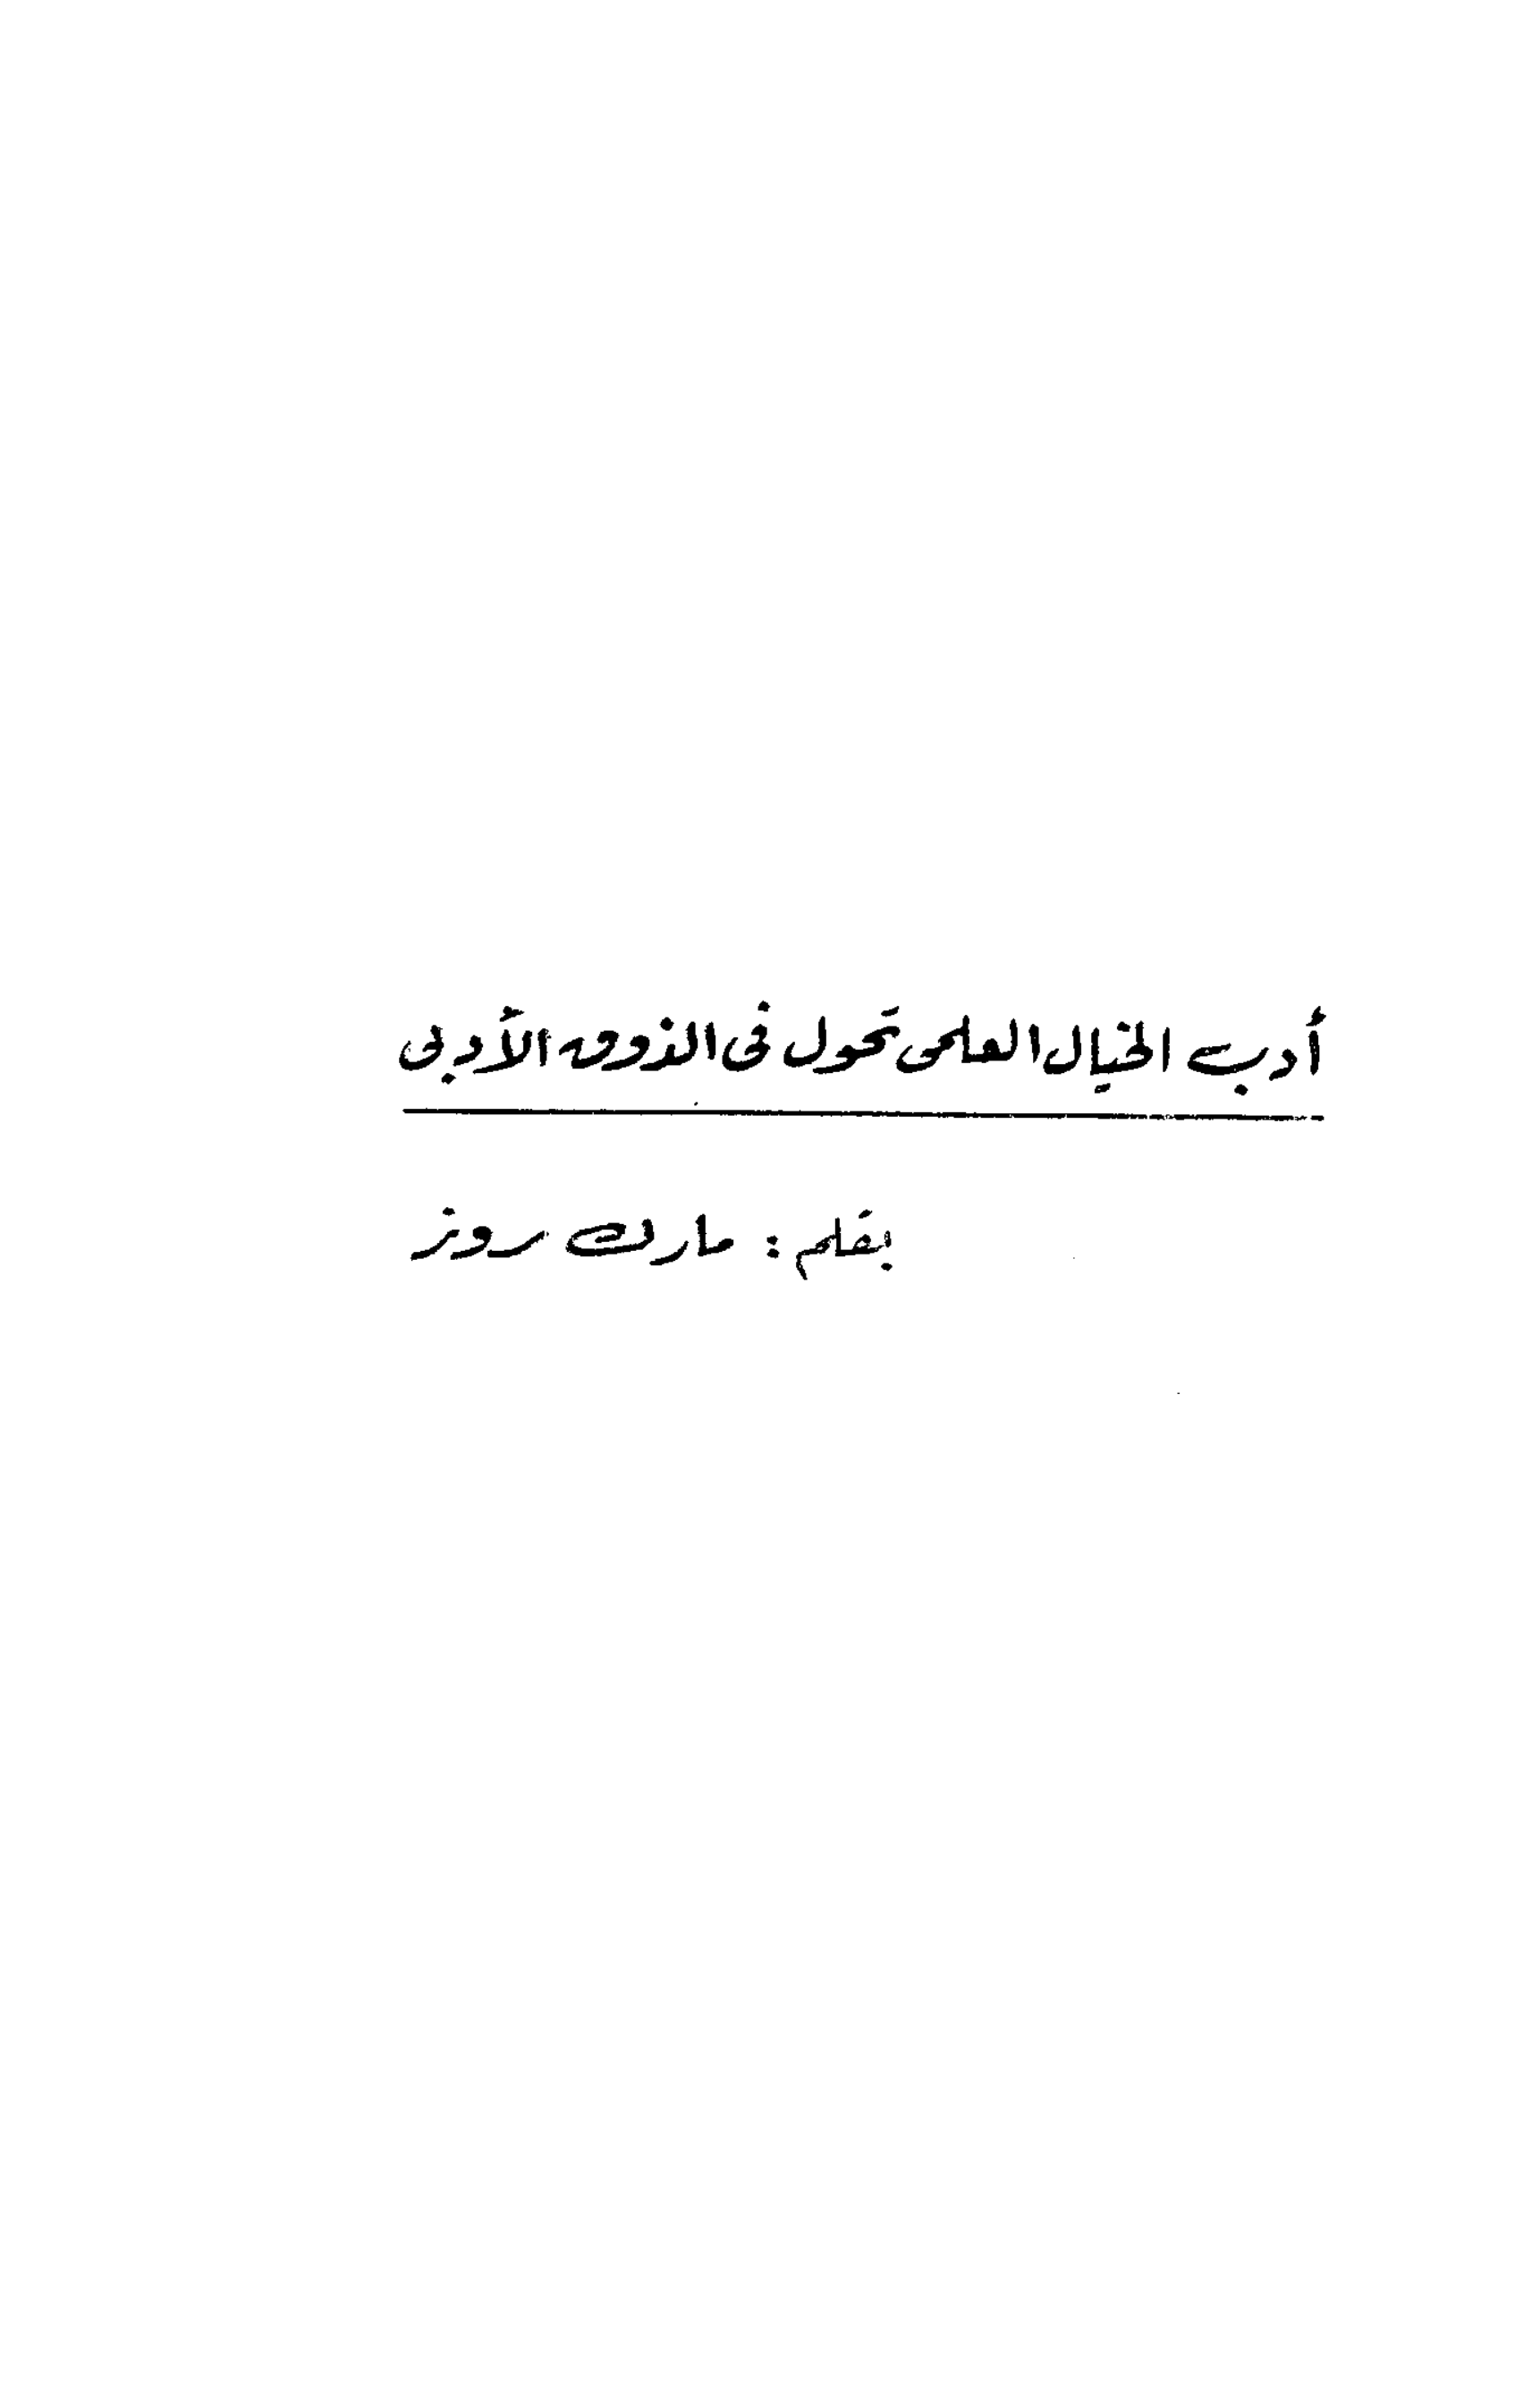 أدب الخيال العلمى تحول فى الذوق الأدبى
بقلم : مارك روز